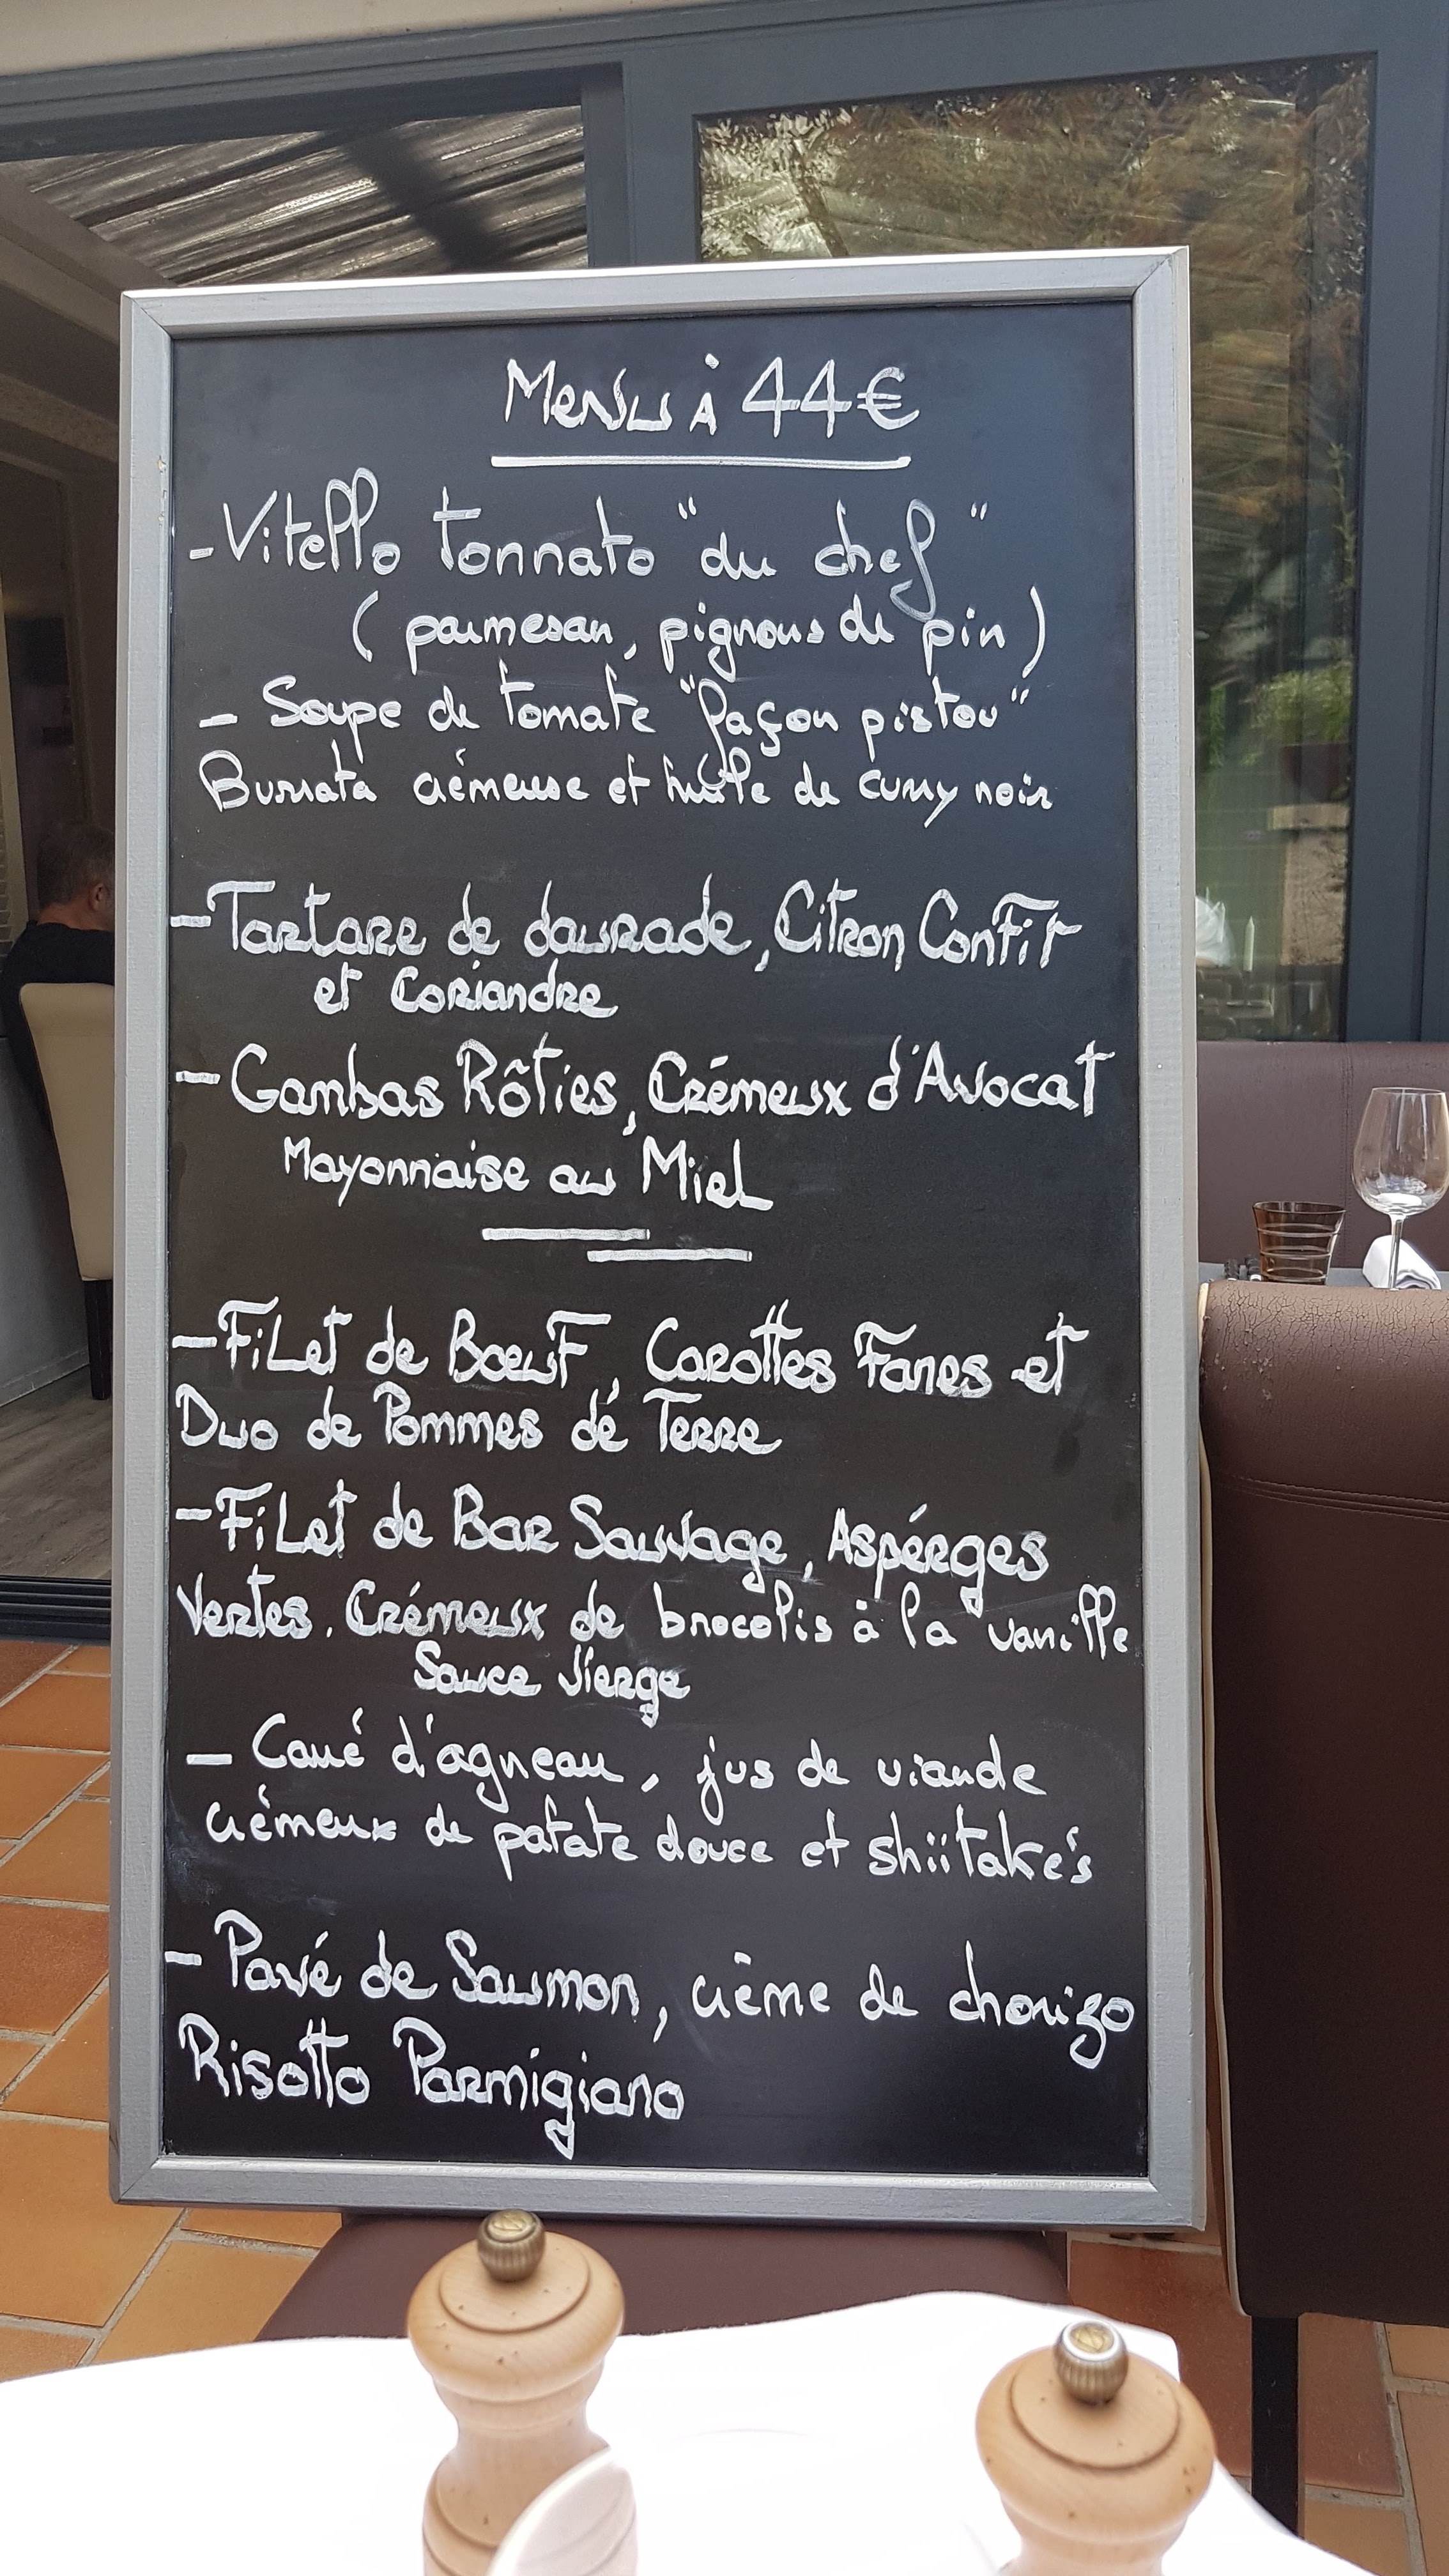 Menu à 44€
- Vitello tonnato "du chef"
( parmesan, pignons de pin )
- Soupe de tomate "façon pistou"
Burrata crémeuse et huile de curry noir
- Tartare de daurade, Citron Confit
et Coriandre
- Gambas Rôties, Crémeux d'Avocat
Mayonnaise au Miel
- Filet de Boeuf, Carottes Fanes et
Duo de Pommes de Terre
- Filet de Bar Sauvage, Aspérges
Vertes. Crémeux de brocolis à la vanille
Sauce Vierge
- Carré d'agneau, jus de viande
crémeux de patate douce et shiitakés
- Pavé de Saumon, crème de chorizo
Risotto Parmigiano